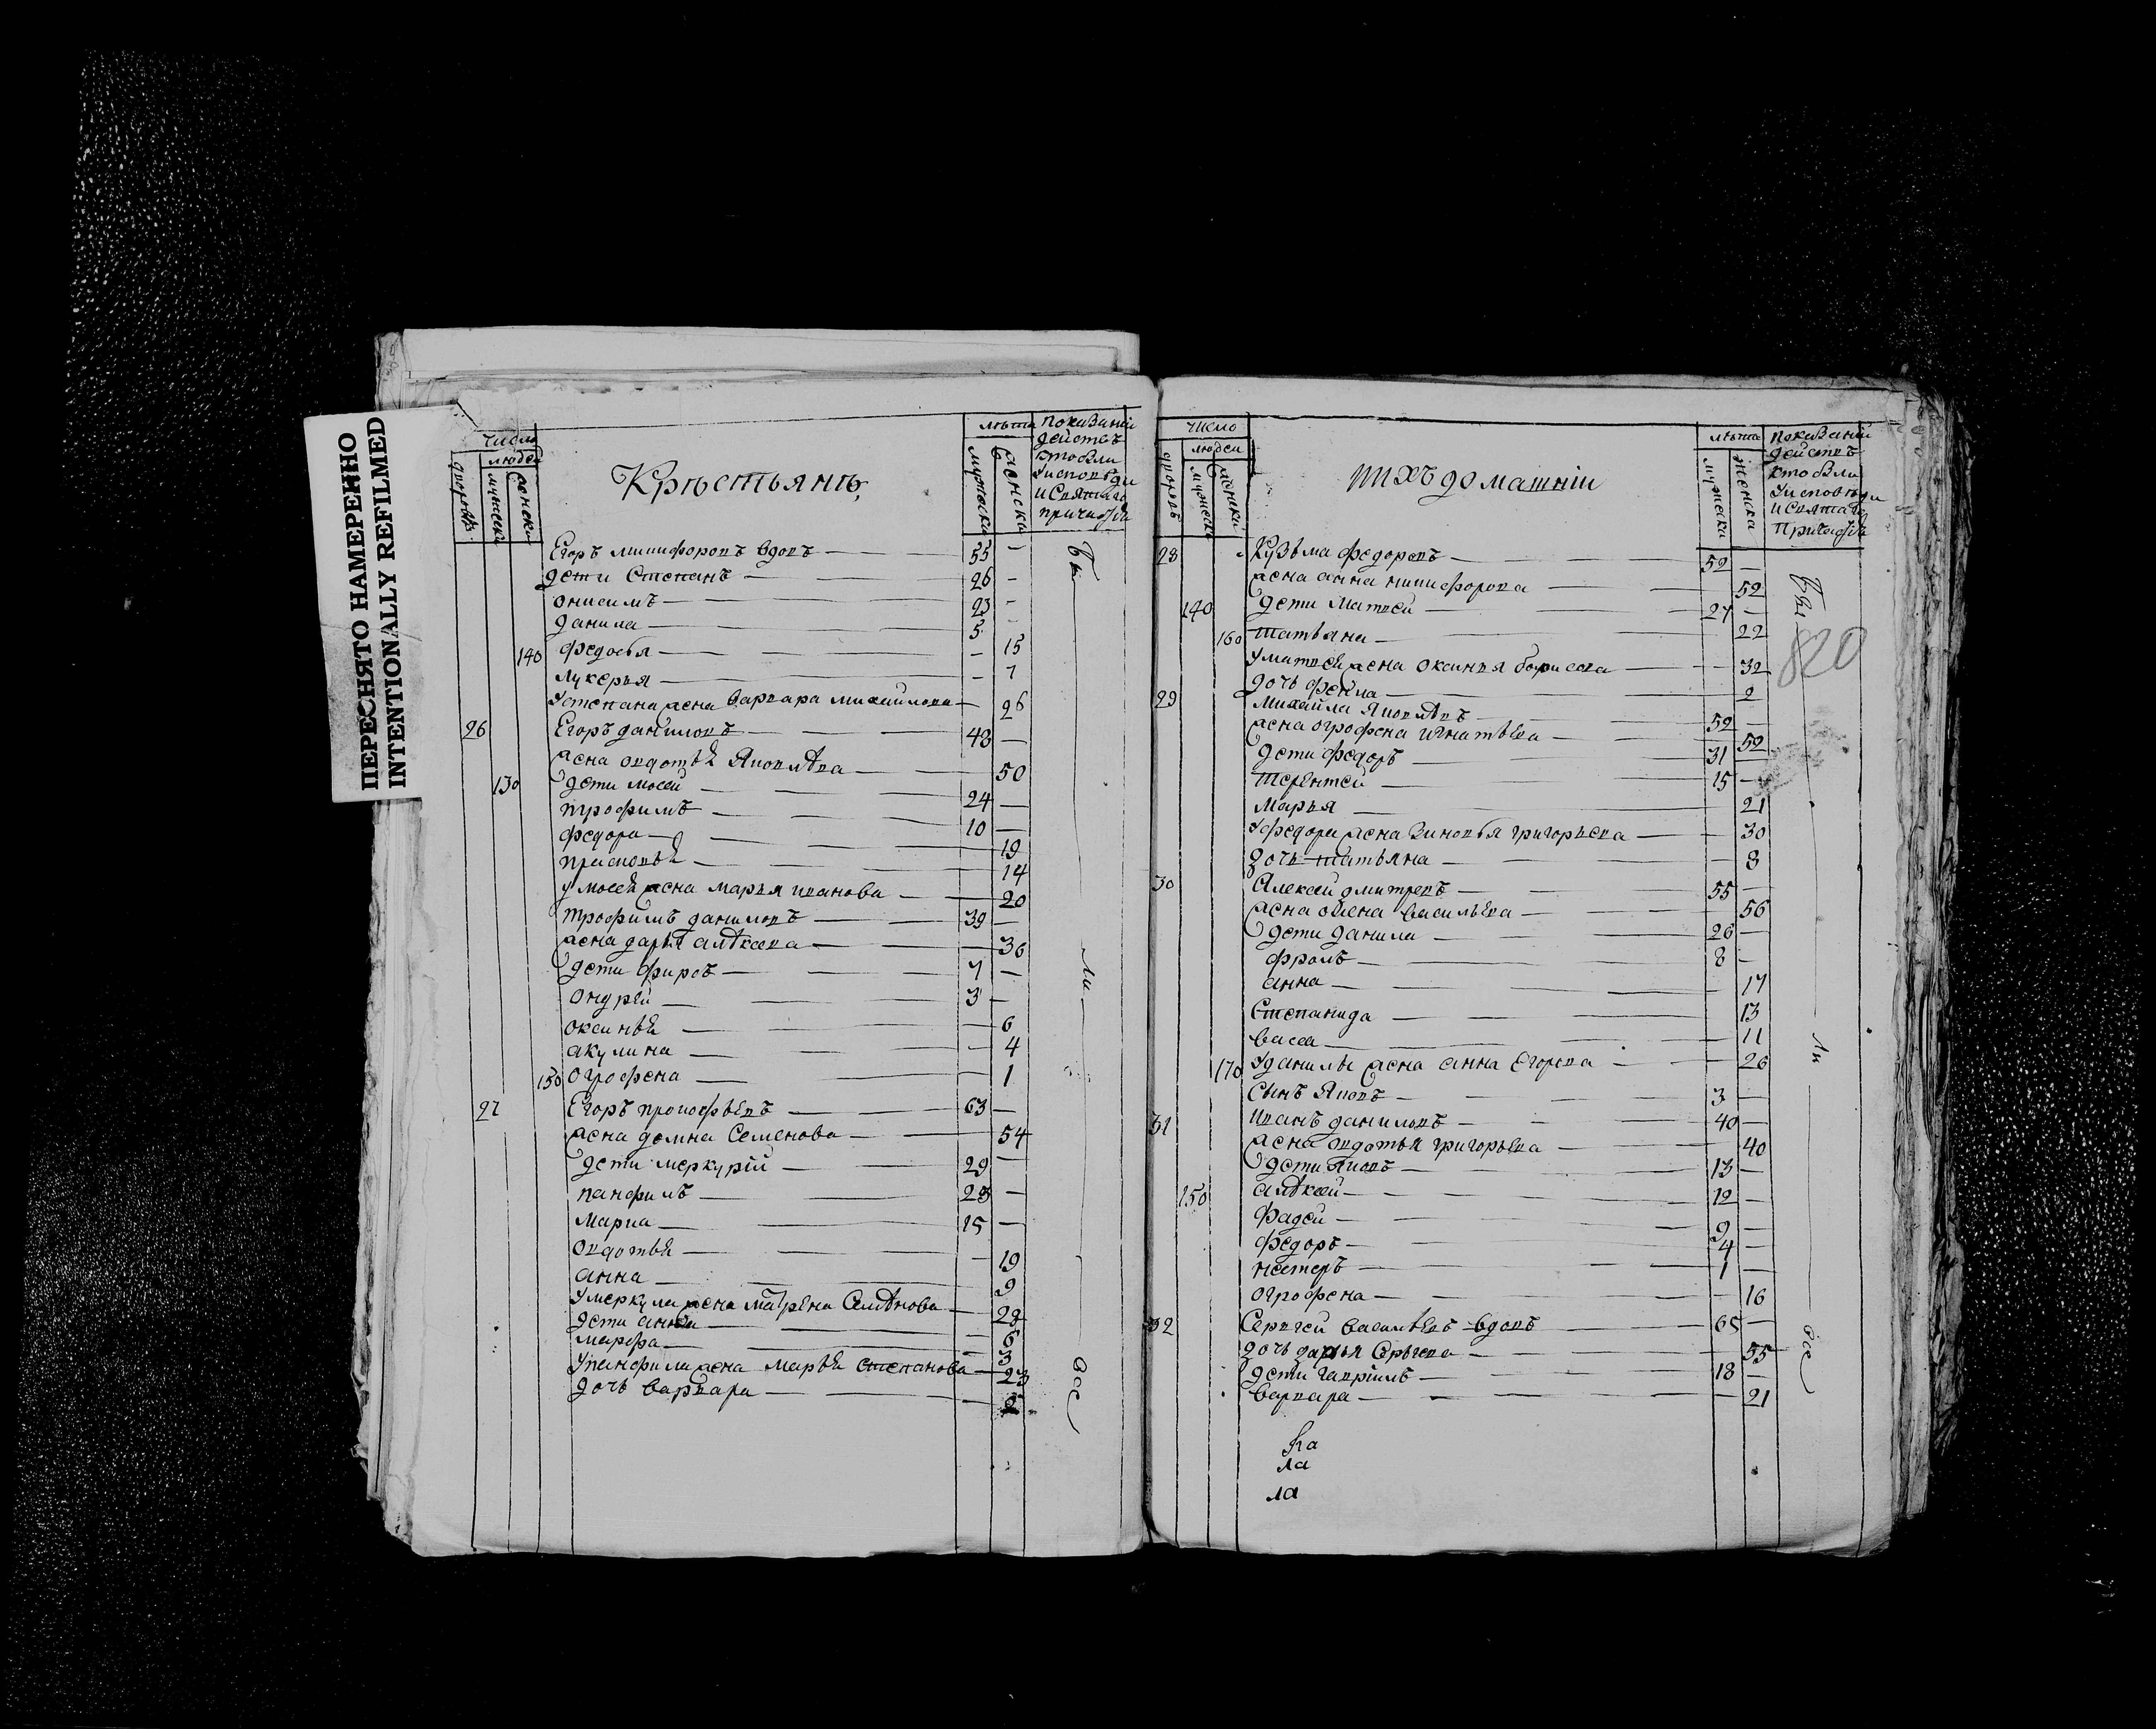 ПЕРЕСНЯТО НАМЕРЕННО
INTENTIONALLY REFILMED
число
людей
дворовъ
мужеска
женска
Крѣстьянъ
лѣта
мужеска
женска
показаніи
действъ
кто были
у исповѣди
и Святаго
причастія
Егоръ никифоровъ вдовъ — 55 —
дети Степанъ — 26 —
онисимъ — 23 —
данила — 5 —
140 федосья — — 15
лукерья — — 7
у степана жена варвара михайлова — 26
26 Егоръ даниловъ — 48 —
жена овдотья Яковлѣва — 50
130 дети мосей — 24 —
трофимъ — 10 —
федора — 19
прасковья — 14
у мосея жена марья иванова — 20
трофимъ даниловъ — 39 —
жена дарья алѣксева — 36
дети фирсъ — 7 —
ондрей — 3 —
оксинья — 6
акулина — 4
150 огрофена — 1
27 Егоръ прокофьевъ — 63 —
жена домна Семенова — 54
дети меркурій — 29 —
панфилъ — 23 —
марка — 15 —
овдотья — 19
анна — 9
у меркула жена матрена Семѣнова — 28
дети анна — 6
марфа — 3
у панфила жена марья степанова — 23
дочь варвара — 2
Бы
ли
все
число
людей
дворовъ
мужеска
женска
ихъ домашніи
лѣта
мужеска
женска
показаніи
действъ
кто были
у исповѣди
и Святаго
Причастія
28 Кузьма федоровъ — 52 —
жена анна никифорова — 52
140 дети матвей — 27 —
160 татьяна — 22
у матвея жена оксинья борисова — 32
дочь фекла — 2
29 михайла Яковлѣвъ — 52 —
жена огрофена игнатьева — 52
дети федоръ — 31 —
терентей — 15 —
марья — 21
у федора жена зиновья григорьева — 30
дочь татьяна — 8
30 Алексей дмитревъ — 55 —
жена олена васильева — 56
дети данила — 26 —
фролъ — 8 —
анна — 17
Степанида — 13
васса — 11
170 у данилы жена анна Егорова — 26
Сынъ Яковъ — 3 —
31 иванъ даниловъ — 40 —
жена овдотья григорьева — 40
дети Яковъ — 13 —
150 алѣксей — 12 —
фадей — 9 —
федоръ — 4 —
нестеръ — 1 —
огрофена — 16
32 Сергей васильевъ вдовъ — 65 —
дочь дарья Сергева — 55
дети гаврилъ — 18 —
варвара — 21
Бы
820
ли
все
ла
ла